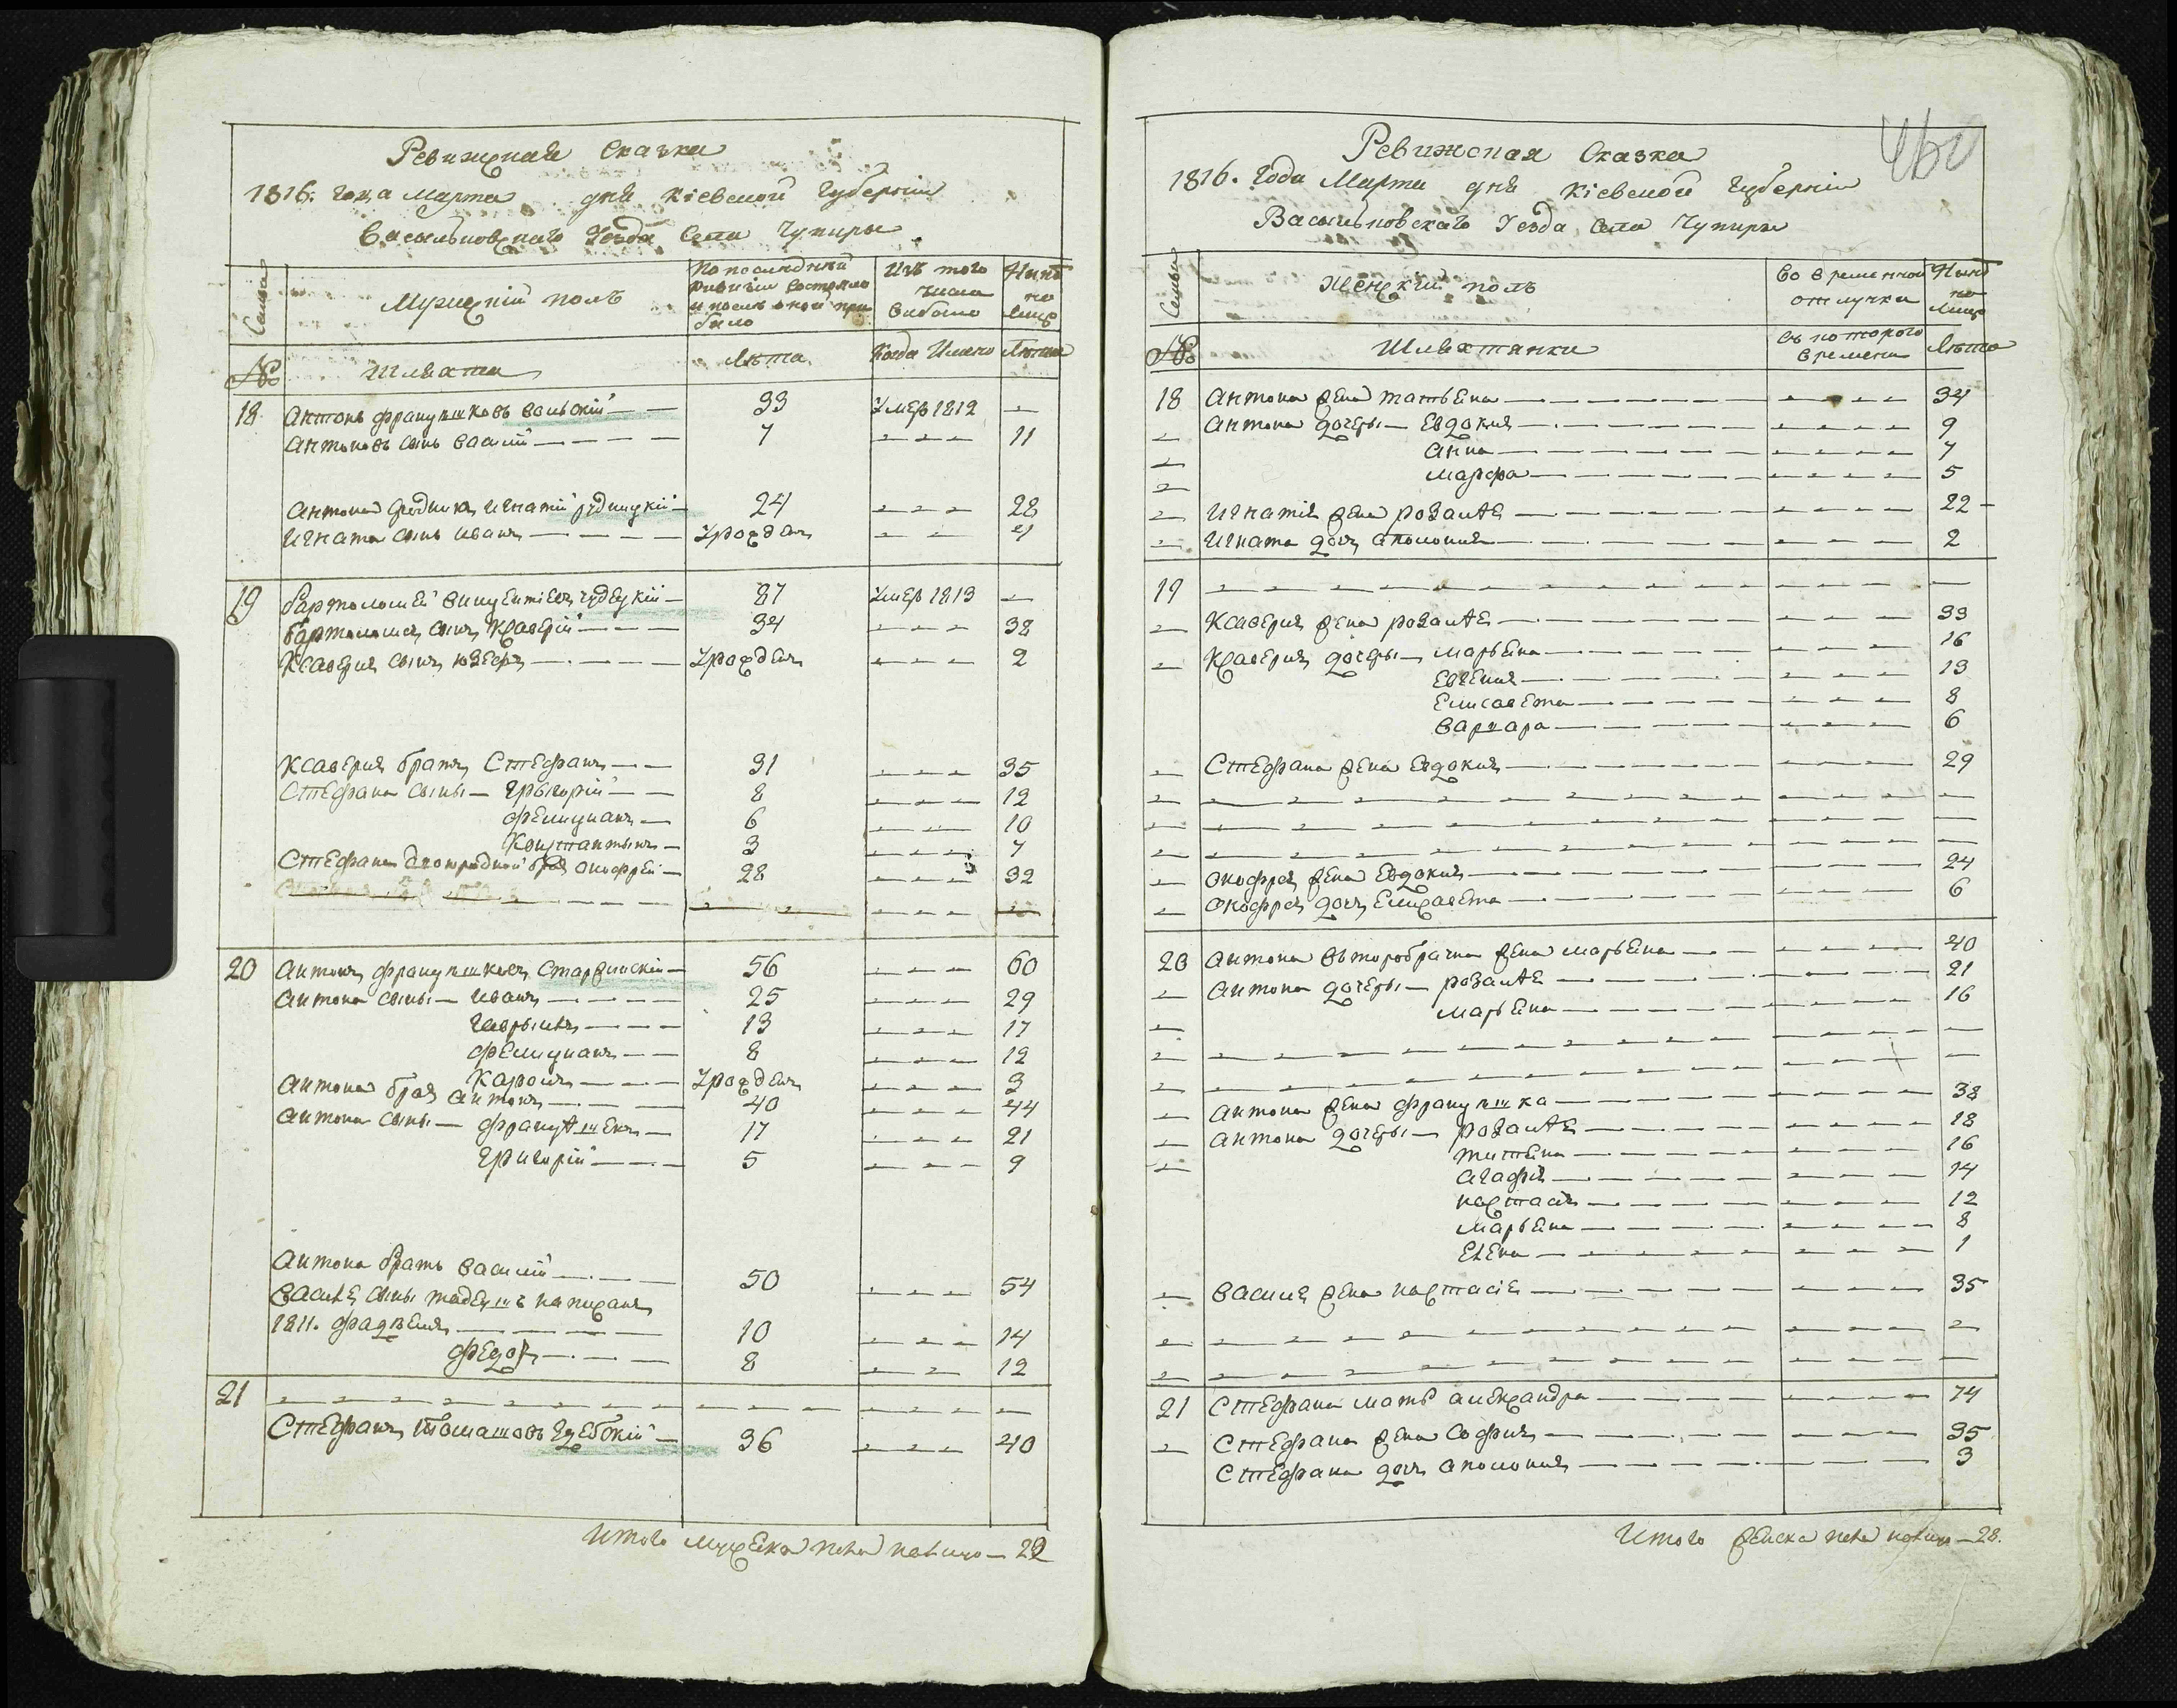 Ревижская Сказка
1816. года Марта дня Кіевской Губерніи
Васильковскаго Уезда Села Чупиры
Семьи
Мужескій полъ
По последней ревизіи состояло и после оной прибыло
Изъ того числа выбыло
Ныне на лицо
№
Шляхта
Лета
Когда Именно
Лета
18 Антонъ Францишковъ Вольскій 33 Умеръ 1812 —
Антоновъ сынъ Василій 7 11
Антона Игнатій Рудницкій 24 28
Игната сынъ Иванъ Урожденъ 4
19 Бартоломей Винцентіевъ Чудецкій 87 Умеръ 1813 —
Бартоломея сынъ Ксаверій 34 38
Ксаверія сынъ Юзефъ Урожденъ 2
Ксаверія братъ Стефанъ 31 35
Стефана сыны — Грыгорій 8 12
Фелиціанъ 6 10
Константынъ 3 7
Стефана двоюродной братъ Онофрей 28 32
20 Антонъ Францишковъ Старжинскій 56 60
Антона сыны — Иванъ 25 29
Гаврыилъ 13 17
Фелиціанъ 8 12
Каролъ Урожденъ 3
Антона братъ Антонъ 40 44
Антона сыны — Францишекъ 17 21
Григорій 5 9
Антона братъ Василій 50 54
Василя сыны Тадеушъ написанъ
1811. 10 14
Федоръ 8 12
21
Стефанъ Томашовъ 36 40
Итого Мужеска пола налицо — 22
460
Ревижская Сказка
1816. Года Марта дня Кіевской Губерніи
Васильковскаго Уезда Села Чупиры
Семьи
Женскій полъ
Во временной отлучки
Ныне на лицо
№
Шляхтянки
Съ которого времени
Лета
18 Антона жена Татьяна 34
Антона дочеры — Евдокія 9
Анна 7
Марфа 5
Игнатія жена Розалія 22
Игната дочъ Аполонія 2
19
Ксаверія жена Розалія 33
Ксаверія дочеры — Марьяна 16
Евгенія 13
Елисавета 8
Варвара 6
Стефана жена Евдокія 29
Онофрея жена Евдокія 24
Онофрея дочъ Елисавета 6
20 Антона второбрачна жена Марьяна 40
Антона дочеры — Розалія 21
Марьяна 16
Антона жена Францишка 38
Антона дочеры — Розалія 18
Татяна 16
Агафія 14
Настасія 12
Марьяна 8
Елена 1
Василя жена Настасія 35
21 Стефана мать Александра 74
Стефана жена Софія 35
Стефана дочъ Аполонія 3
Итого женска пола налицо — 28.